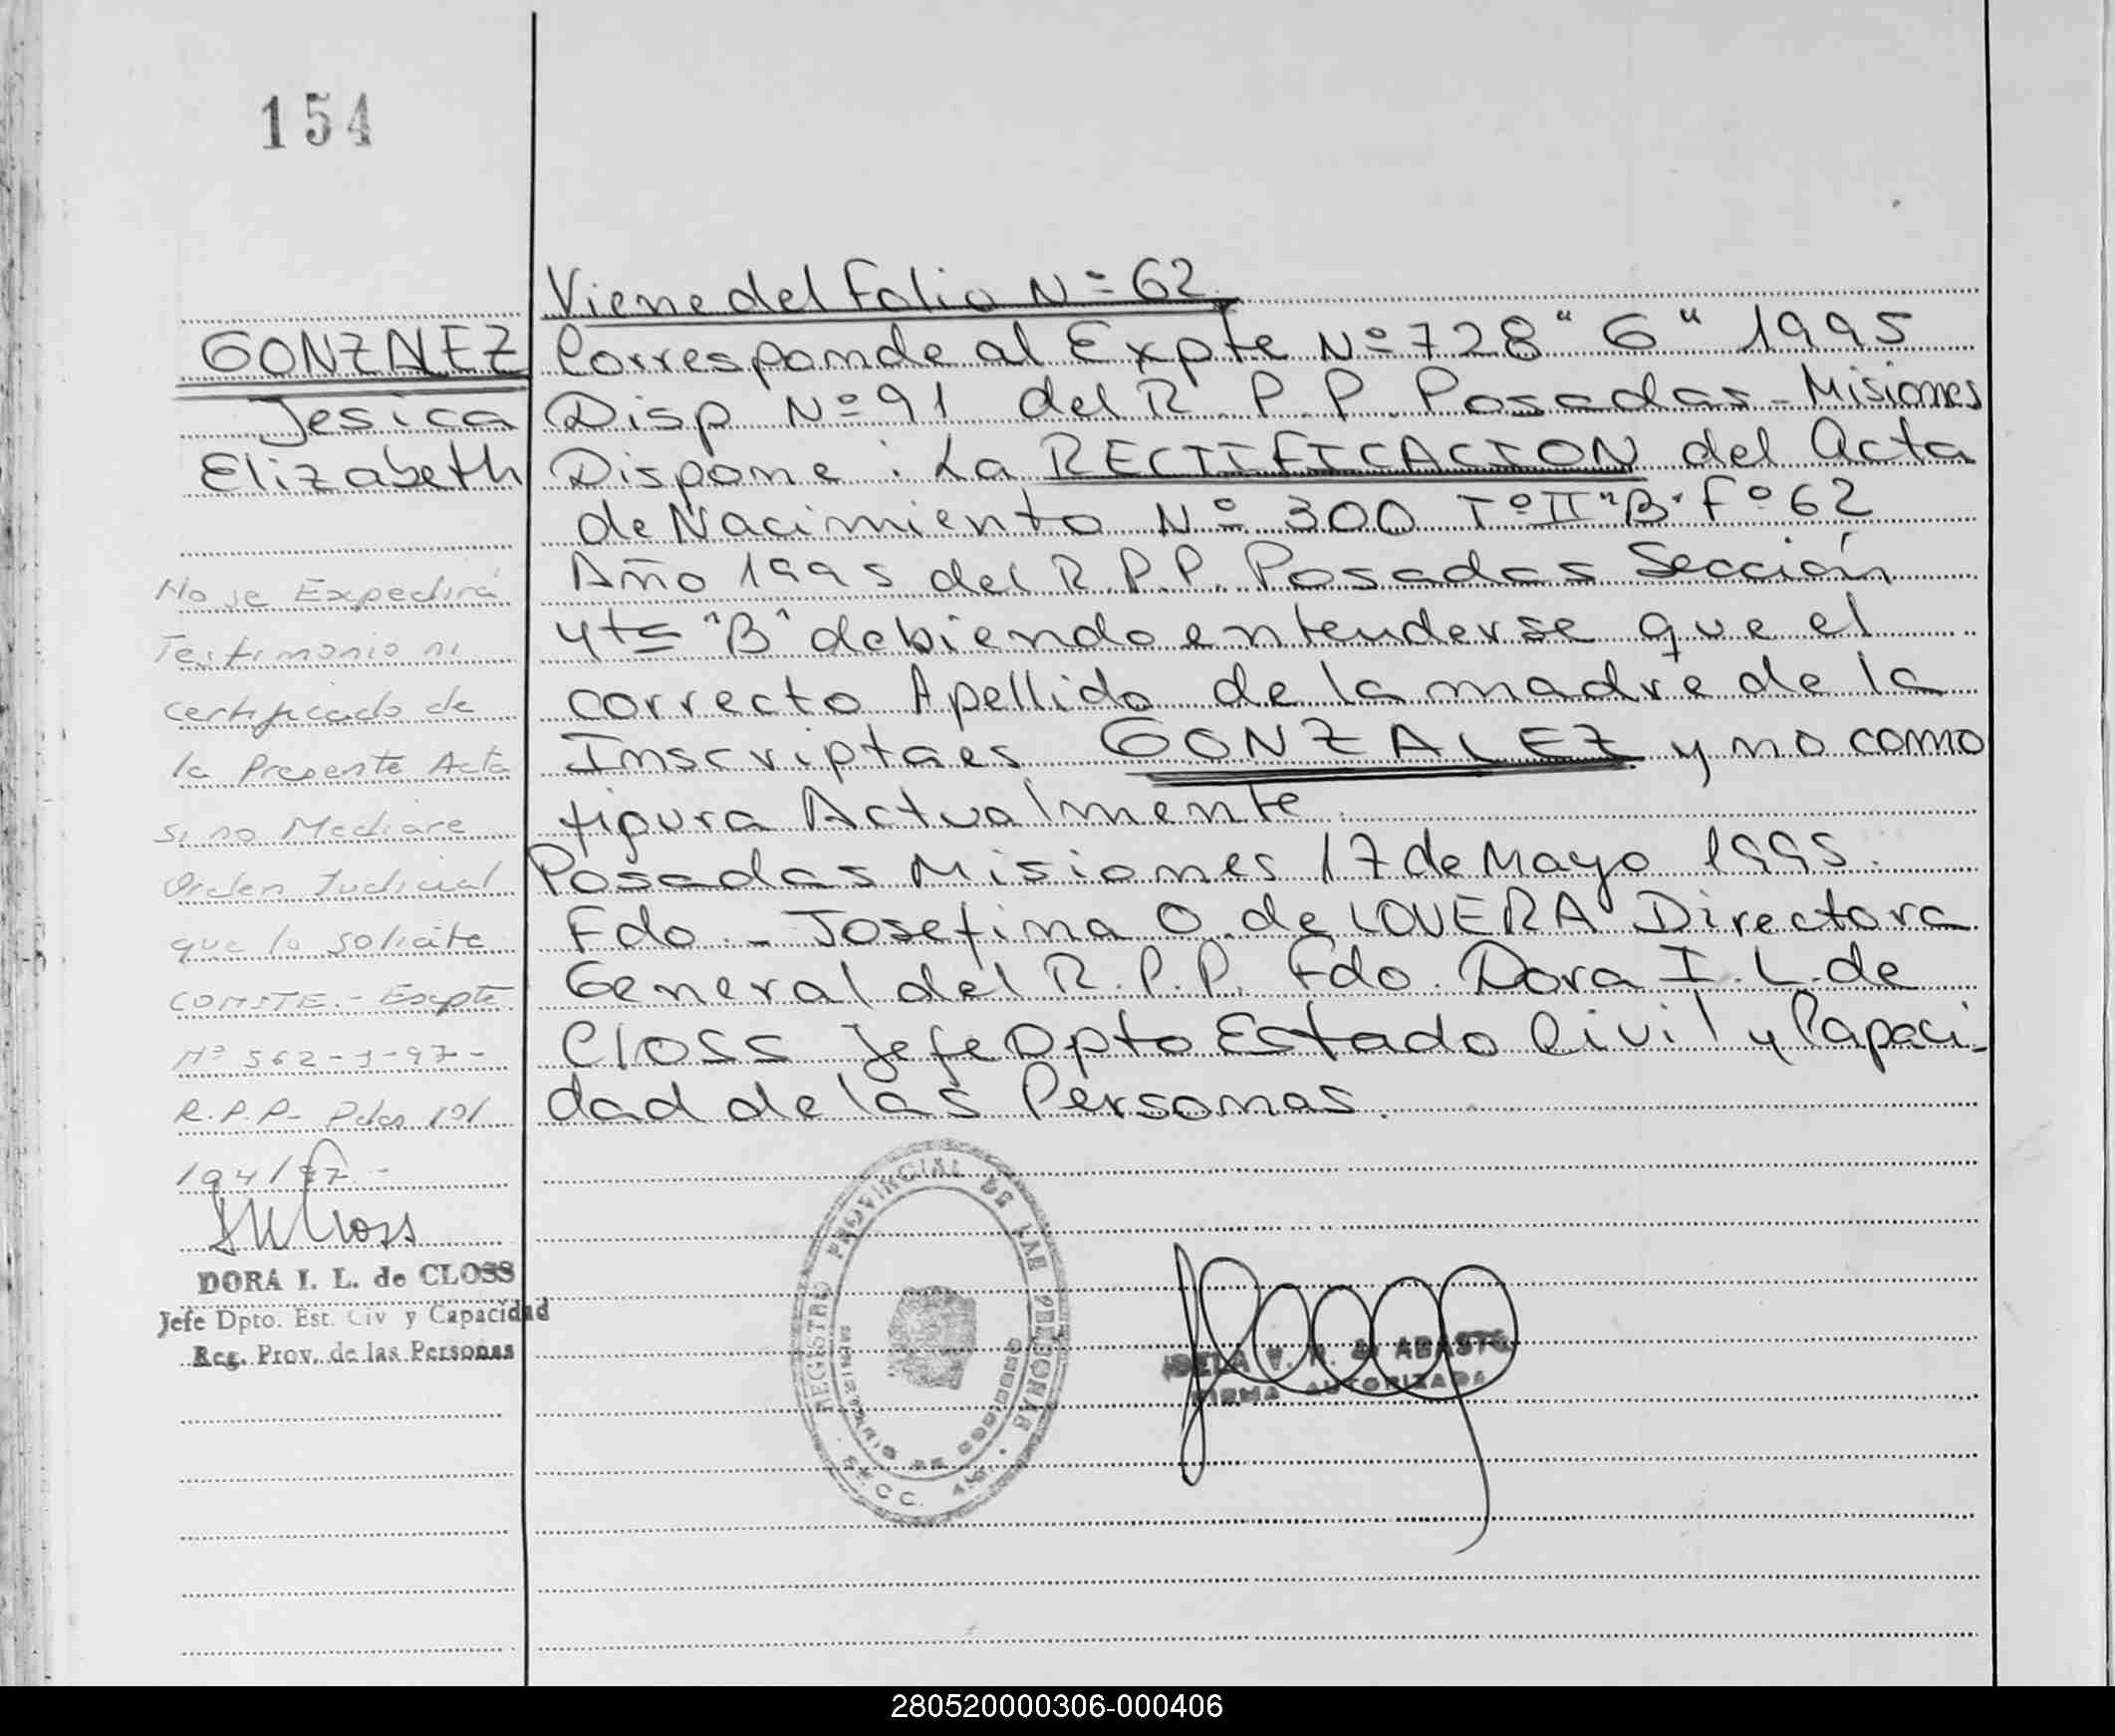 154
Viene del Folio Nº 62
GONZALEZ
Jesica
Elizabeth
Corresponde al Expte Nº 728 "G" 1995
Disp Nº 91 del R. P. P. Posadas - Misiones
Dispone: La RECTIFICACION del Acta
de Nacimiento Nº 300 Tº II "B" Fº 62
Año 1995 del R.P.P. Posadas Sección
4ta "B" debiendo entenderse que el
correcto Apellido de la madre de la
Inscripta es GONZALEZ y no como
figura Actualmente.
Posadas Misiones 17 de Mayo 1995.
Fdo. - Josefina O. de LOVERA Directora
General del R.P.P. Fdo. Dora I. L. de
Closs Jefe Dpto Estado Civil y Capaci-
dad de las Personas.
No se Expedirá
Testimonio ni
certificado de
la Presente Acta
si no Mediare
Orden Judicial
que lo solicite
CONSTE.- Expte
Nº 562-J-97-
R.P.P- Pdas
/97.-
DORA I. L. de CLOSS
Jefe Dpto. Est. Civ y Capacidad
Reg. Prov. de las Personas
REGISTRO PROVINCIAL DE LAS PERSONAS
FIRMA AUTORIZADA
280520000306-000406